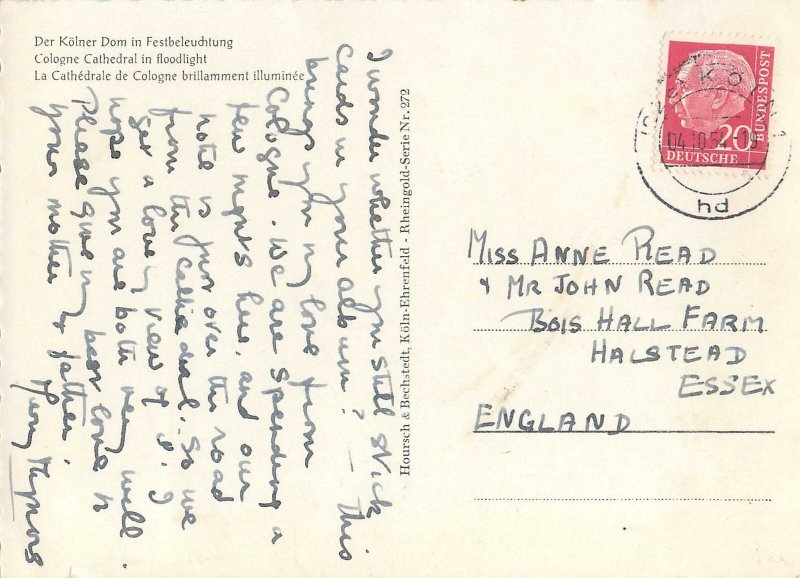 Der Kölner Dom in Festbeleuchtung
Cologne Cathedral in floodlight
La Cathédrale de Cologne brillamment illuminée
I wonder whether you still stick
cards in your album? – this
brings you my love from
Cologne. We are spending a
few nights here, and our
hotel is just over the road
from the Cathedral. So we
get a lovely view of it. I
hope you are both very well.
Please give my best love to
your mother & father.
Hoursch & Bechstedt, Köln-Ehrenfeld - Rheingold-Serie Nr. 272
KÖLN 1
04.10.54-19
hd
20
DEUTSCHE
BUNDESPOST
MISS ANNE READ
& MR JOHN READ
BOIS HALL FARM
HALSTEAD
ESSEX
ENGLAND